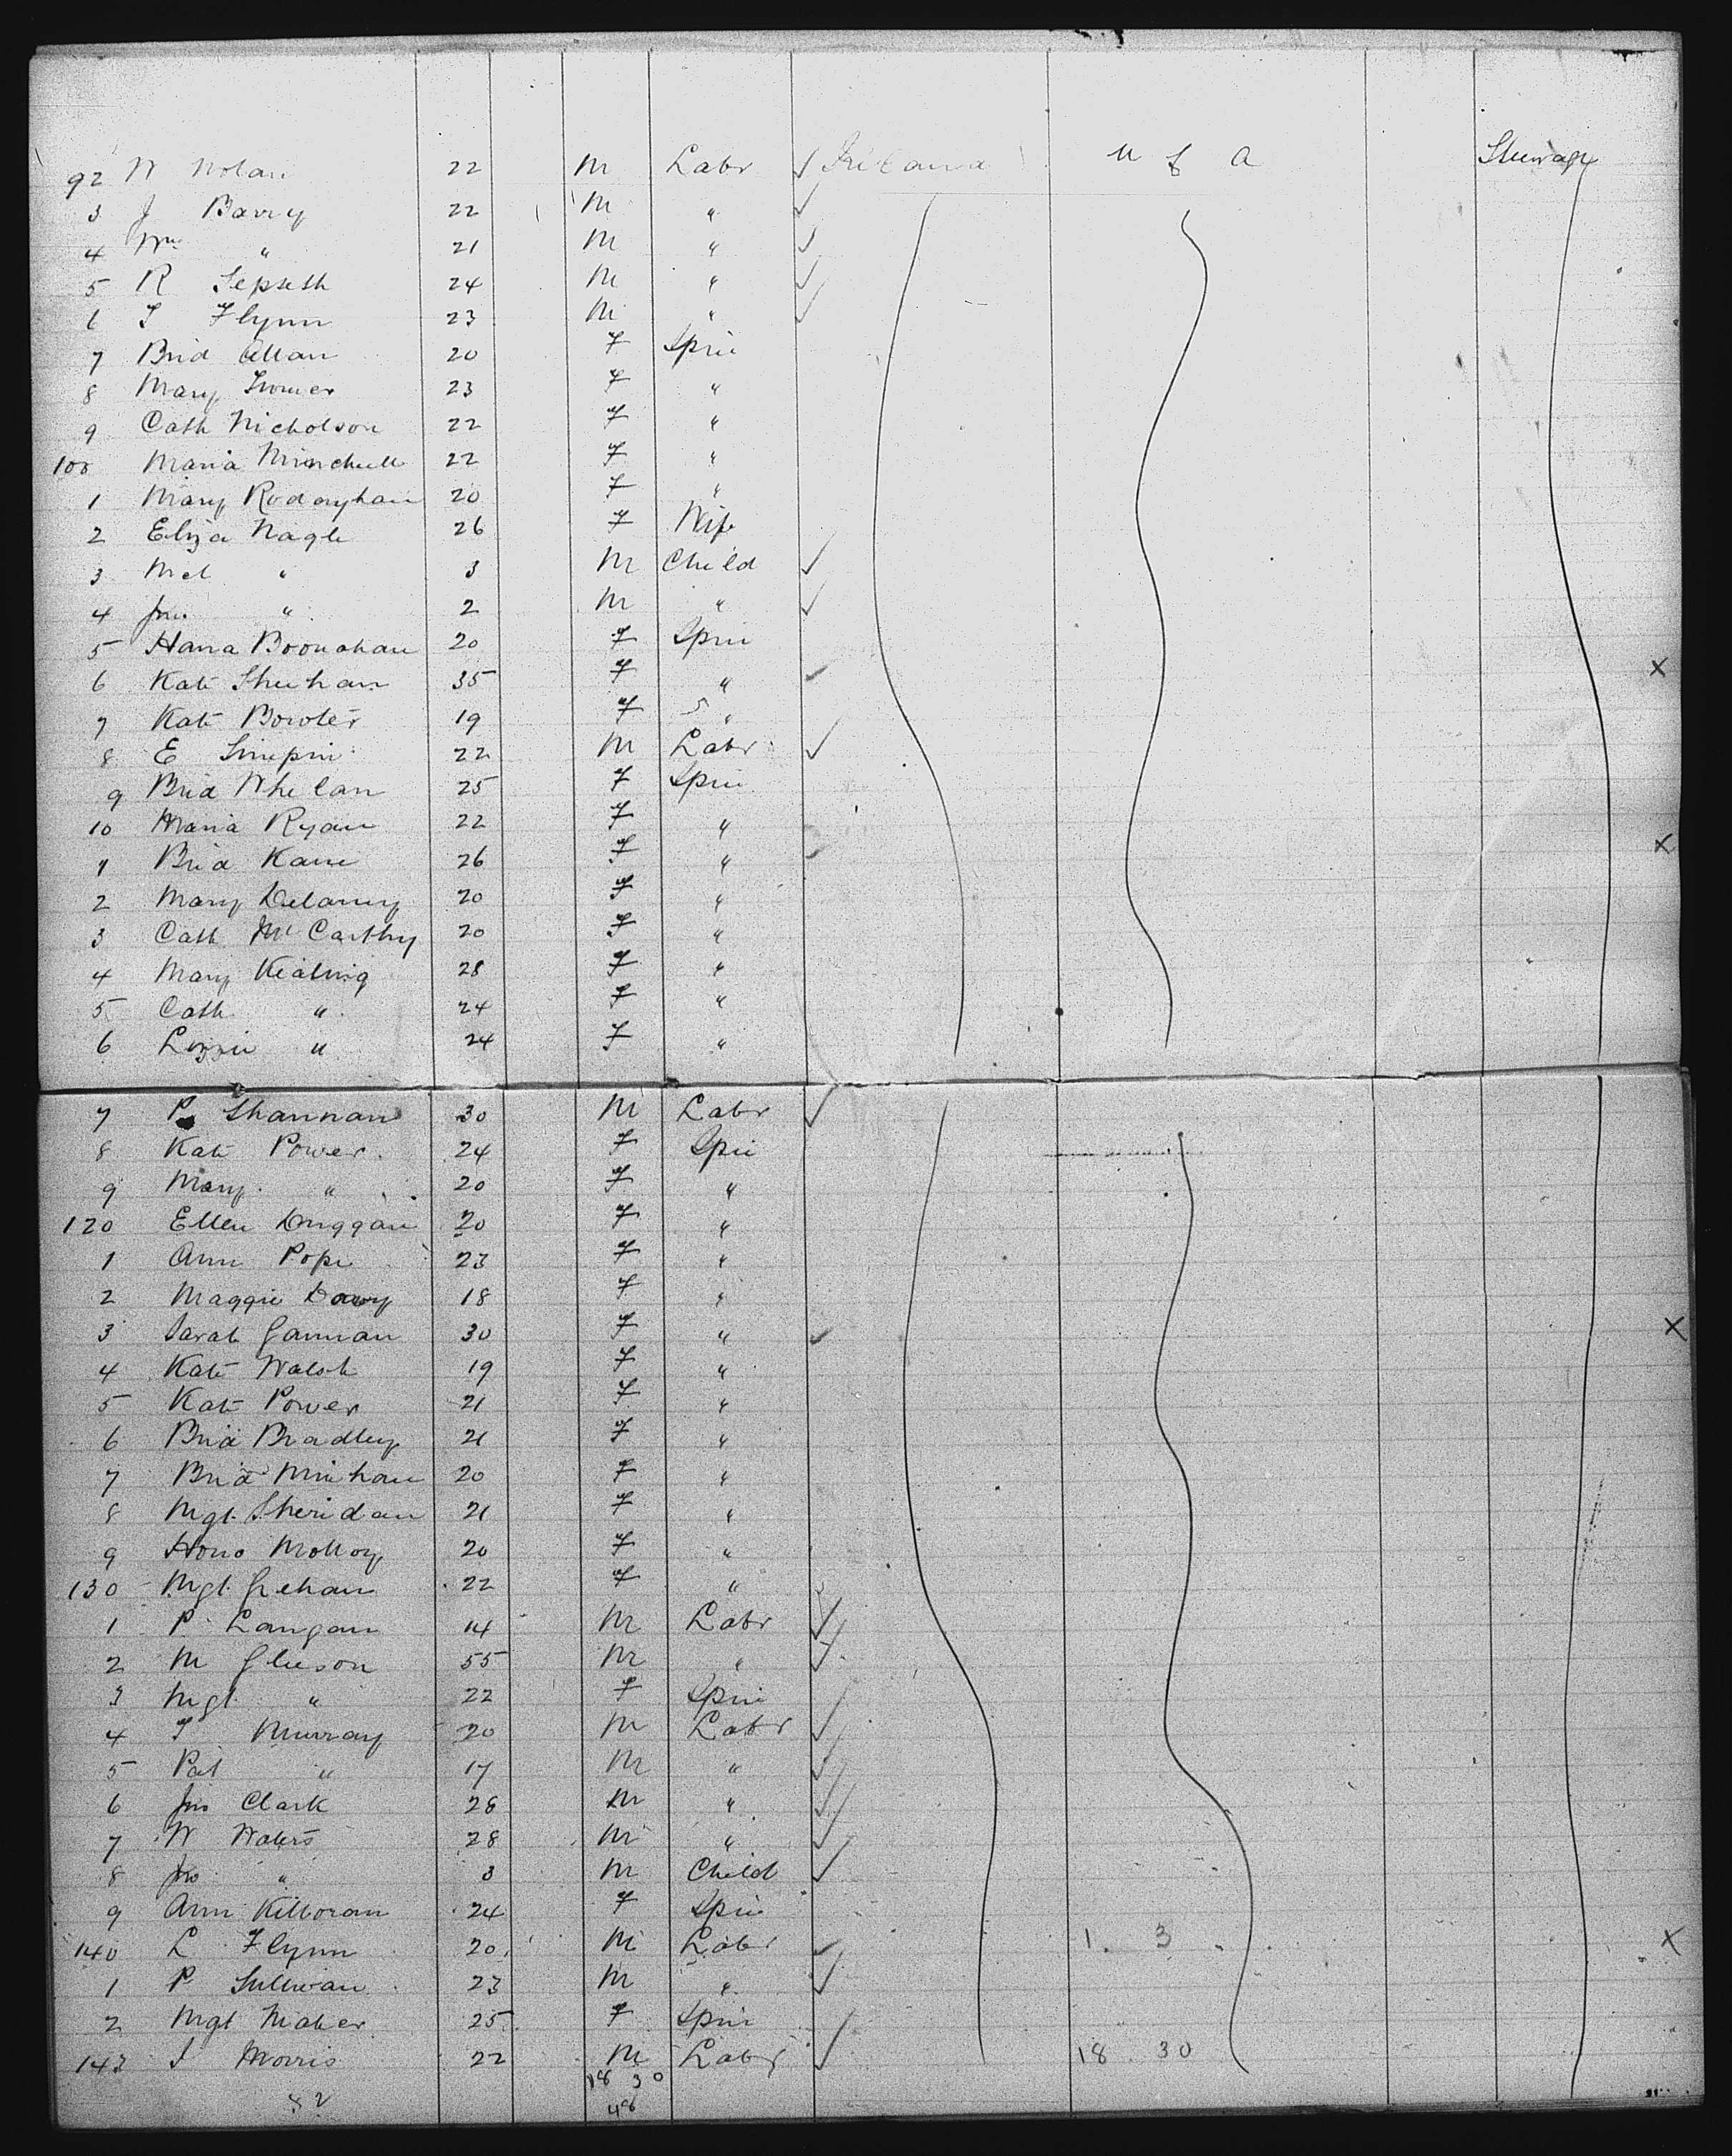 92 W Nolan 22 M Labr ✓ Ireland U S A Steerage
3 J Barry 22 M " ✓
4 Wm " 21 M " ✓
5 R 24 M " ✓
6 T Flynn 23 M " ✓
7 Brid Allan 20 F Spin
8 Mary 23 F "
9 Cath Nicholson 22 F "
100 Maria 22 F "
1 Mary 20 F "
2 Eliza Nagle 26 F Wife
3 Mcl " 3 M Child ✓
4 Jno " 2 M " ✓
5 Hana 20 F Spin
6 Kate Sheehan 35 F " ✓ X
7 Kate Bowler 19 F "
8 E 22 M Labr ✓
9 Brid Whelan 25 F Spin
10 Maria Ryan 22 F "
11 Brid Kane 26 F " ✓ X
2 Mary Delaney 20 F "
3 Cath McCarthy 20 F "
4 Mary Keating 28 F "
5 Cath " 24 F "
6 Lizzie " 24 F "
7 P Shannan 30 M Labr ✓
8 Kate Power 24 F Spin
9 Mary " 20 F "
120 Ellen Duggan 20 F "
1 Ann Pope 23 F "
2 Maggie 18 F "
3 Sarah Gannan 30 F " ✓ X
4 Kate Walsh 19 F "
5 Kate Power 21 F "
6 Brid Bradley 21 F "
7 Brid Minehan 20 F "
8 Mgt Sheridan 21 F "
9 Hono Molloy 20 F "
130 Mgt Gehan 22 F "
1 P Langan 14 M Labr ✓
2 M Gleeson 55 M " ✓
3 Mgt " 22 F Spin
4 T Murray 20 M Labr ✓
5 Pat " 17 M " ✓
6 Jno Clark 28 M " ✓
7 W Waters 28 M " ✓
8 Jno " 3 M Child ✓
9 Ann Killoran 24 F Spin
140 L Flynn 20 M Labr ✓ 1. 3 X
1 P Sullivan 23 M " ✓
2 Mgt Maher 25 F Spin
143 J Morris 22 M Labr ✓ 18 30
18 30
52 48